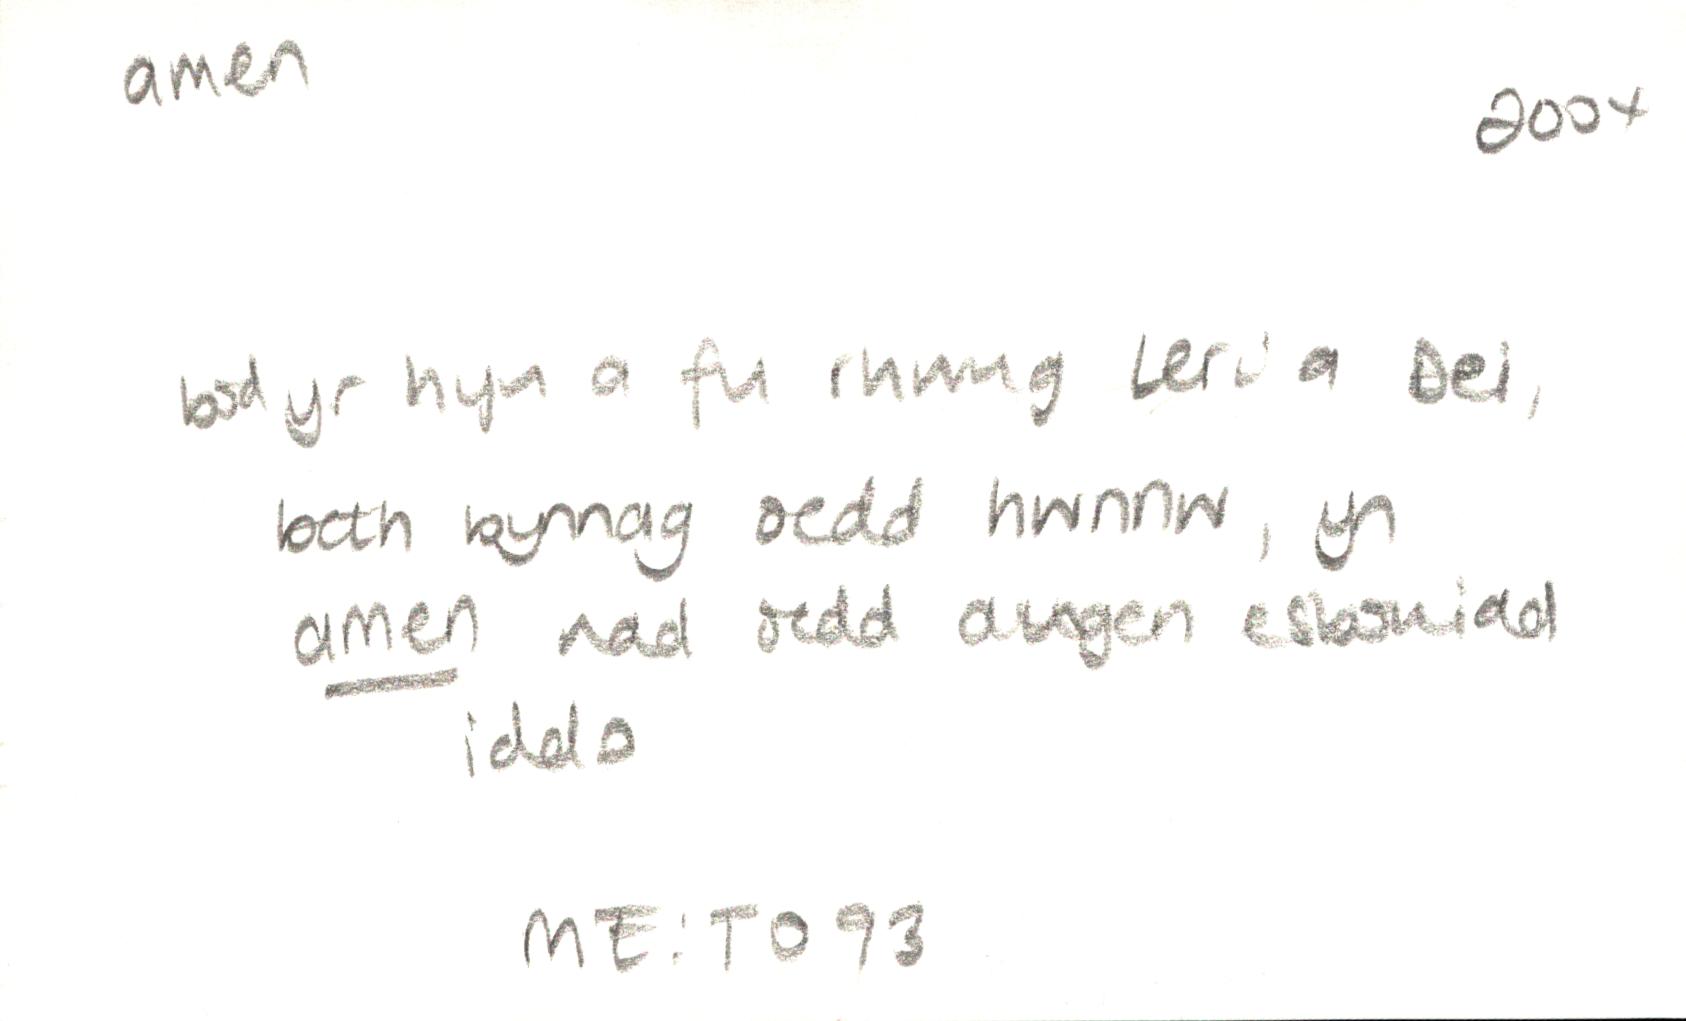 amen
2004
bod yr hyn a fu rhwng Leri a Dei,
beth bynnag oedd hwnnw, yn
amen nad oedd angen esboniad
iddo
ME:TO 93